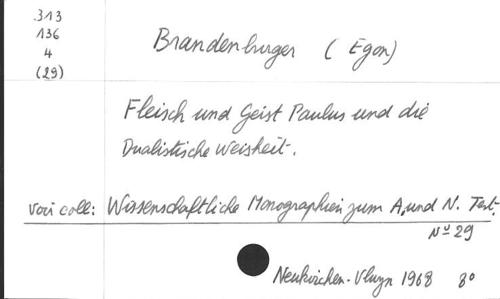 313
136
4
(29)
Brandenburger (Egon)
Fleisch und Geist Paulus und die
Dualistische Weisheit.
Voir coll: Wissenschaftliche Monographien zum A. und N. Test.
Nº 29
Neukirchen-Vluyn 1968 8°